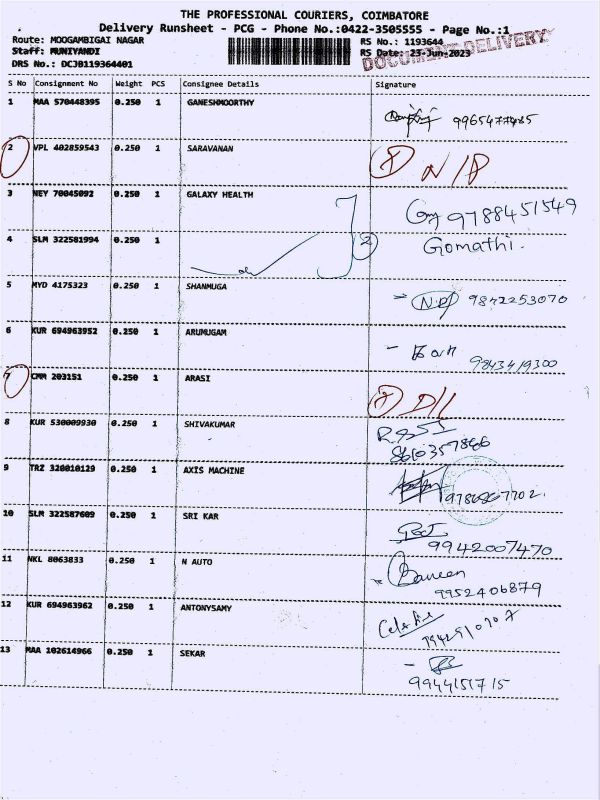 THE PROFESSIONAL COURIERS, COIMBATORE
Delivery Runsheet - PCG - Phone No.:0422-3505555 - Page No.:1
Route: MOOGAMBIGAI NAGAR
Staff: MUNIYANDI
DRS No.: DCJB119364401
RS No.: 1193644
RS Date: 23-Jun-2023
DOCUMENT DELIVERY
S No Consignment No Weight PCS Consignee Details Signature
1 MAA 570448395 0.250 1 GANESHMOORTHY 9965477485
2 VPL 402859543 0.250 1 SARAVANAN
3 NEY 70045092 0.250 1 GALAXY HEALTH 9788451549
4 SLM 322581994 0.250 1 2 Gomathi.
5 MYD 4175323 0.250 1 SHANMUGA 9842253070
6 KUR 694963952 0.250 1 ARUMUGAM 9843419300
7 CMM 203151 0.250 1 ARASI D/L
8 KUR 530009930 0.250 1 SHIVAKUMAR
9 TRZ 320010129 0.250 1 AXIS MACHINE
10 SLM 322587609 0.250 1 SRI KAR 9942007470
11 NKL 8063833 0.250 1 N AUTO 9952406879
12 KUR 694963962 0.250 1 ANTONYSAMY
13 MAA 102614966 0.250 1 SEKAR 9944151715